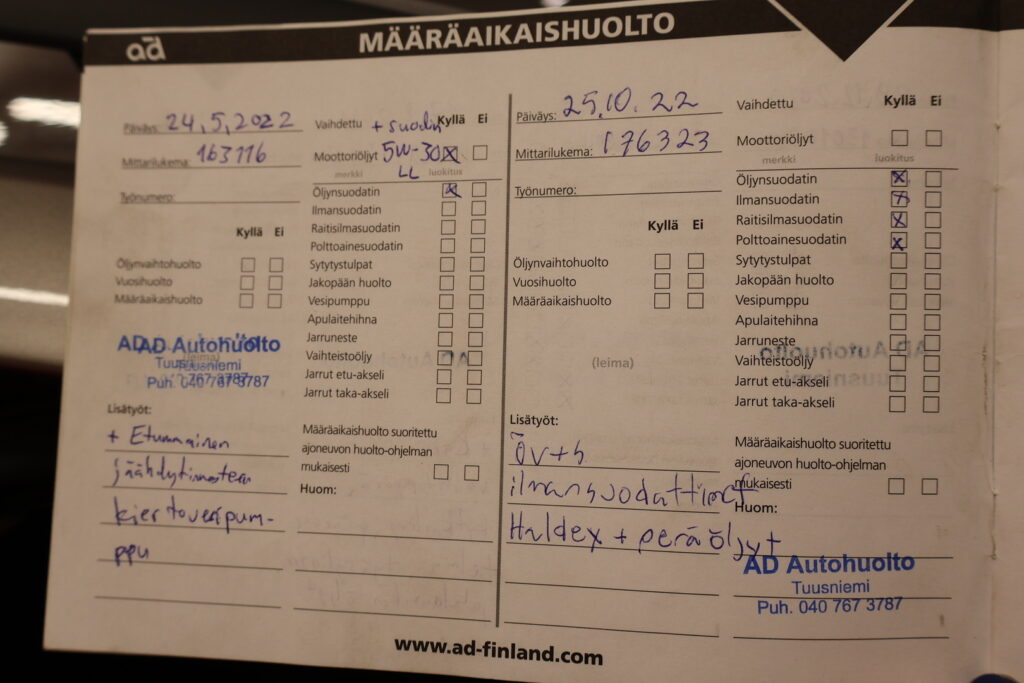 ad
MÄÄRÄAIKAISHUOLTO
Päiväys: 24.5.2022
Mittarilukema: 163116
Työnumero:
Kyllä Ei
Öljynvaihtohuolto
Vuosihuolto
Määräaikaishuolto
(leima)
AD Autohuolto
Tuusniemi
Puh. 040 767 3787
Lisätyöt:
+ Etummainen
jäähdytinnesteen
kiertovesipum-
ppu
Vaihdettu + suodin Kyllä Ei
Moottoriöljyt 5W-30 X
merkki LL luokitus
Öljynsuodatin X
Ilmansuodatin
Raitisilmasuodatin
Polttoainesuodatin
Sytytystulpat
Jakopään huolto
Vesipumppu
Apulaitehihna
Jarruneste
Vaihteistoöljy
Jarrut etu-akseli
Jarrut taka-akseli
Määräaikaishuolto suoritettu
ajoneuvon huolto-ohjelman
mukaisesti
Huom:
Päiväys: 25.10.22
Mittarilukema: 176323
Työnumero:
Kyllä Ei
Öljynvaihtohuolto
Vuosihuolto
Määräaikaishuolto
(leima)
Lisätyöt:
Öv+s
ilmansuodattimet
Haldex + peräöljyt
Vaihdettu Kyllä Ei
Moottoriöljyt
merkki luokitus
Öljynsuodatin X
Ilmansuodatin X
Raitisilmasuodatin X
Polttoainesuodatin X
Sytytystulpat
Jakopään huolto
Vesipumppu
Apulaitehihna
Jarruneste
Vaihteistoöljy
Jarrut etu-akseli
Jarrut taka-akseli
Määräaikaishuolto suoritettu
ajoneuvon huolto-ohjelman
mukaisesti
Huom:
AD Autohuolto
Tuusniemi
Puh. 040 767 3787
www.ad-finland.com